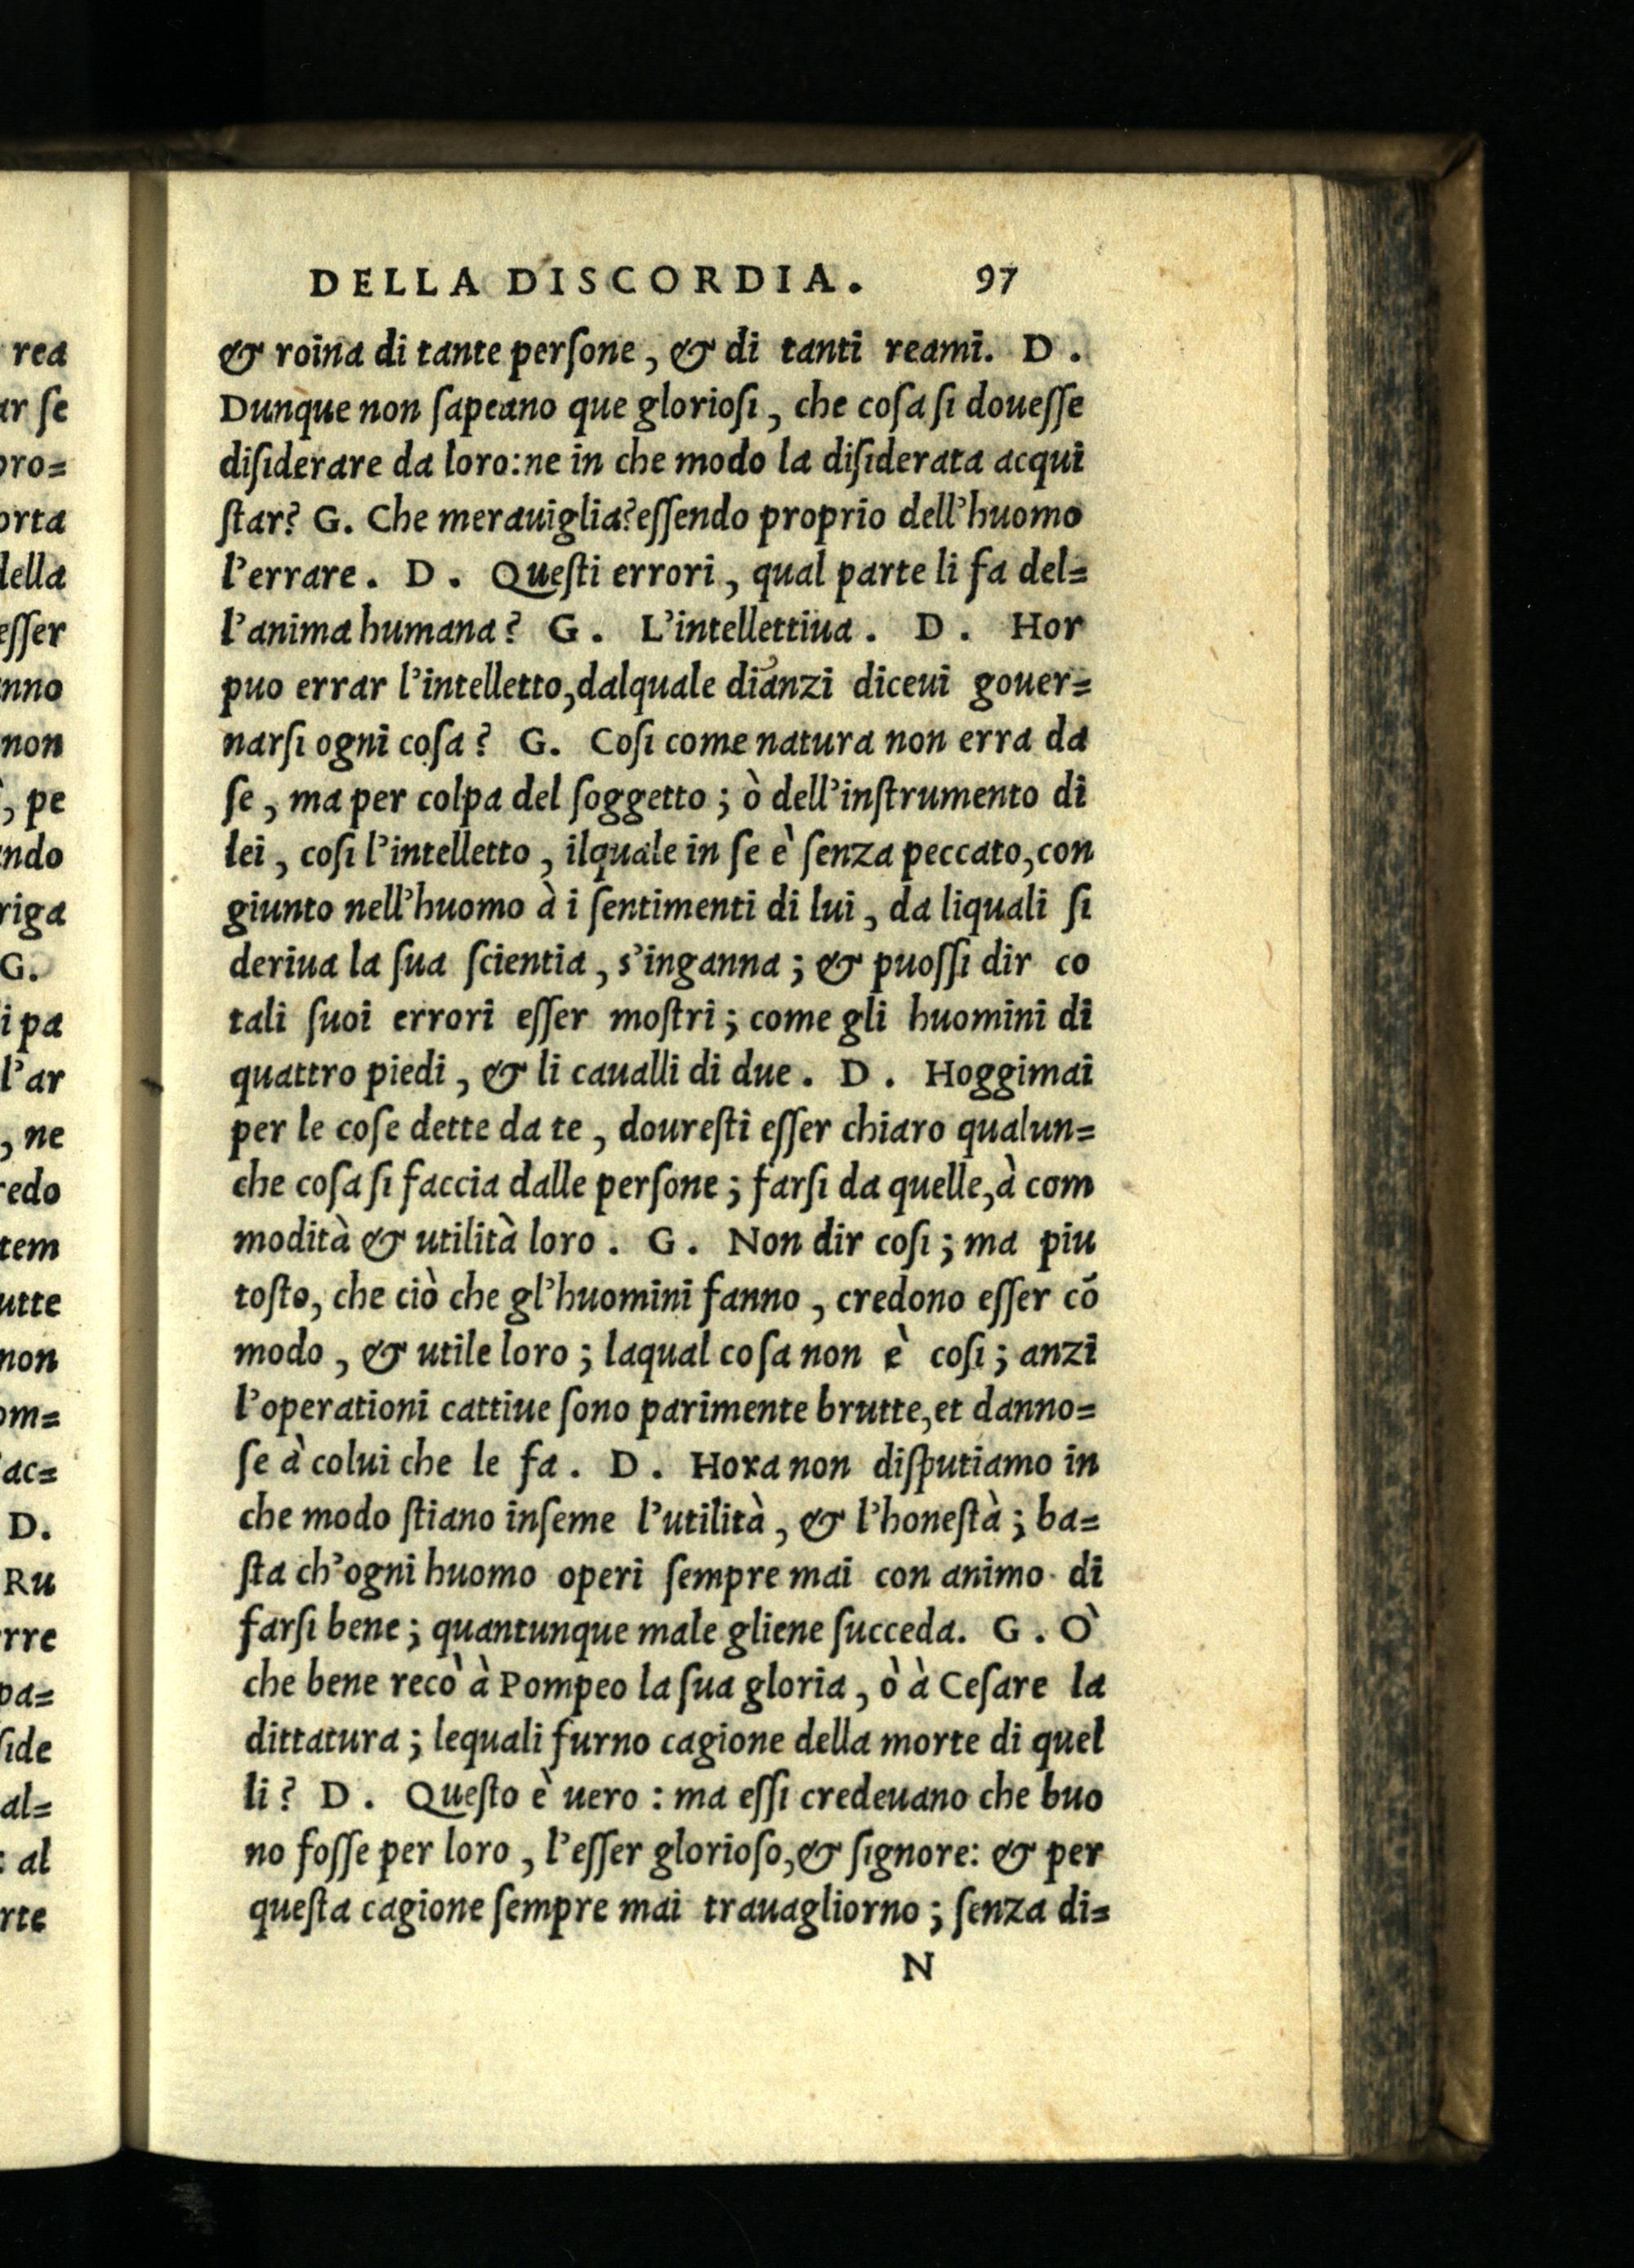 DELLA DISCORDIA. 97
& roina di tante perſone, & di tanti reami. D.
Dunque non ſapeano que glorioſi, che coſa ſi doueſſe
diſiderare da loro:ne in che modo la diſiderata acqui
ſtar? G. Che merauiglia?eſſendo proprio dell'huomo
l'errare. D. Queſti errori, qual parte li fa del=
l'anima humana? G. L'intellettiua. D. Hor
puo errar l'intelletto,dalquale dianzi diceui gouer=
narſi ogni coſa? G. Coſi come natura non erra da
ſe, ma per colpa del ſoggetto; ò dell'inſtrumento di
lei, coſi l'intelletto, ilquale in ſe è ſenza peccato,con
giunto nell'huomo à i ſentimenti di lui, da liquali ſi
deriua la ſua ſcientia, s'inganna; & puoſſi dir co
tali ſuoi errori eſſer moſtri; come gli huomini di
quattro piedi, & li caualli di due. D. Hoggimai
per le coſe dette da te, doureſti eſſer chiaro qualun=
che coſa ſi faccia dalle perſone; farſi da quelle,à com
modità & utilità loro. G. Non dir coſi; ma piu
toſto, che ciò che gl'huomini fanno, credono eſſer cõ
modo, & utile loro; laqual coſa non è coſi; anzi
l'operationi cattiue ſono parimente brutte,et danno=
ſe à colui che le fa. D. Hora non diſputiamo in
che modo ſtiano inſeme l'utilità, & l'honeſtà; ba=
ſta ch'ogni huomo operi ſempre mai con animo di
farſi bene; quantunque male gliene ſucceda. G. Ò
che bene recò à Pompeo la ſua gloria, ò à Ceſare la
dittatura; lequali furno cagione della morte di quel
li? D. Queſto è uero: ma eſſi credeuano che buo
no foſſe per loro, l'eſſer glorioſo,& ſignore: & per
queſta cagione ſempre mai trauagliorno; ſenza di=
N
rea
ar ſe
pro=
orta
della
eſſer
anno
non
, pe
ando
riga
G.
i pa
l'ar
, ne
redo
tem
utte
non
om=
ac=
D.
Ru
erre
pa=
ſide
al=
: al
rte